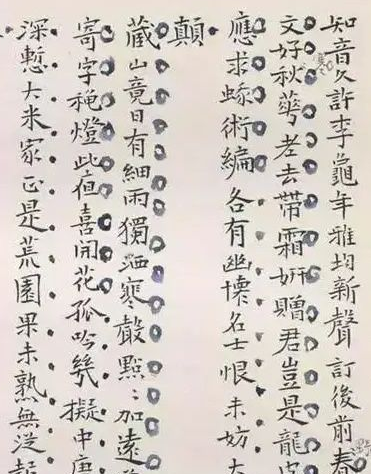 知音久許李龜年雅均新聲訂後前春
文好秋蕚老去帶霜妍贈君豈是龍
應求蛾術編各有幽懷名士恨未妨大
顛
藏山竟日有細雨獨寒聲點〻加遠
寄字穐燈此夜喜開花孤吟幾擬中唐
深慙大米家正是荒園果未熟無